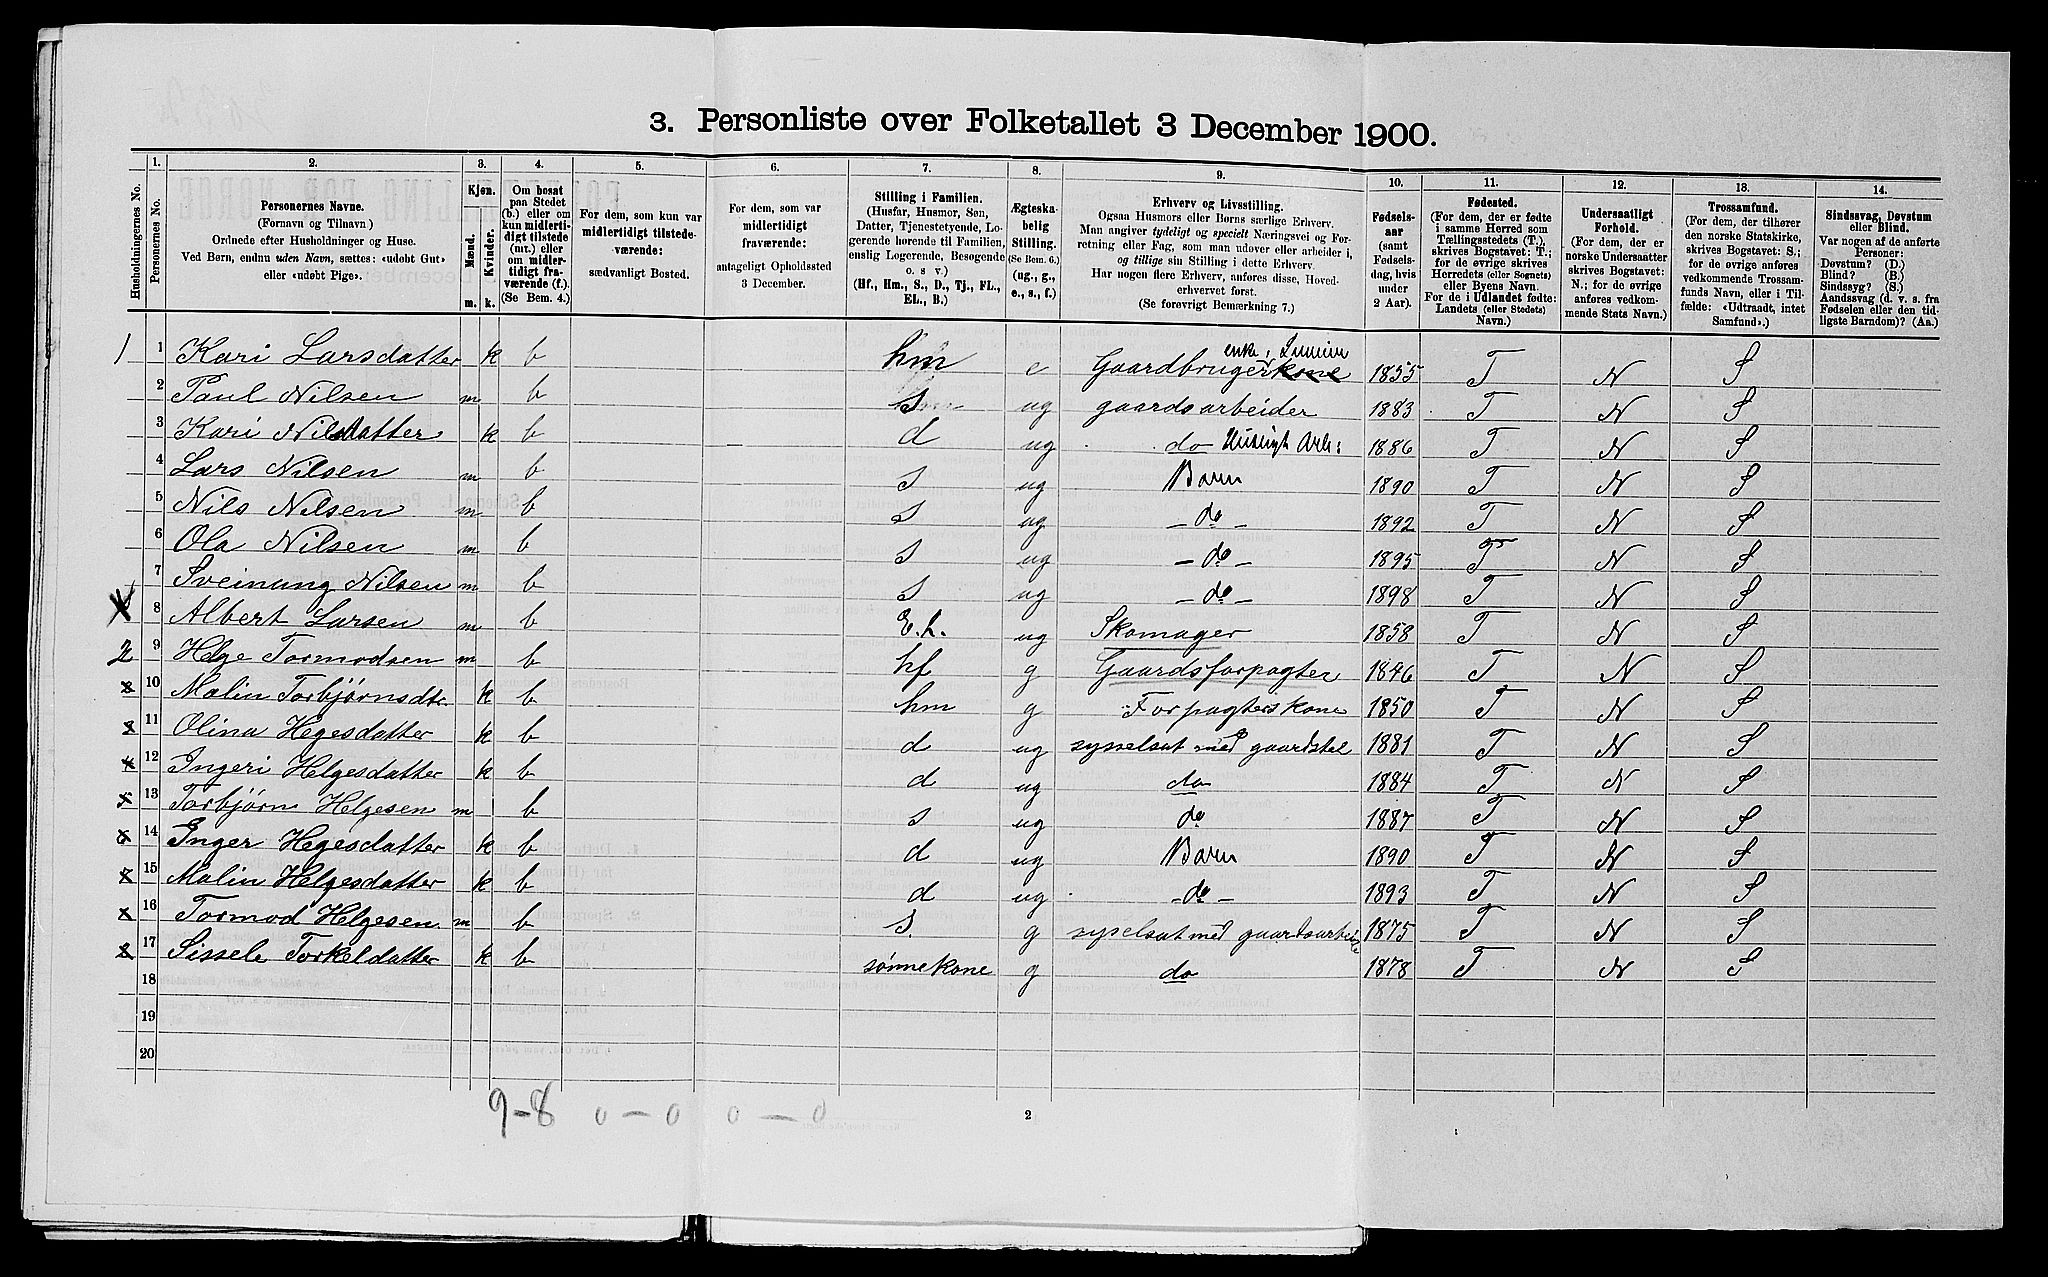 3. Personliste over Folketallet 3 December 1900.
1. 2. 3. 4. 5. 6. 7. 8. 9. 10. 11. 12. 13. 14.
Husholdningernes No.
Personernes No.
Personernes Navne.
(Fornavn og Tilnavn)
Ordnede efter Husholdninger og Huse.
Ved Børn, endnu uden Navn, sættes: «udøbt Gut»
eller «udøbt Pige».
Kjøn.
Mænd.
Kvinder.
m. k.
Om bosat
paa Stedet
(b.) eller om
kun midlerti-
digt tilstede
(mt.) eller
om midler-
tidigt fra-
værende (f.).
(Se Bem. 4.)
For dem, som kun var
midlertidigt tilstede-
værende:
sædvanligt Bosted.
For dem, som var
midlertidigt
fraværende:
antageligt Opholdssted
3 December.
Stilling i Familien.
(Husfar, Husmor, Søn,
Datter, Tjenestetyende, Lo-
gerende hørende til Familien,
enslig Logerende, Besøgende
o. s v.)
(Hf., Hm., S., D., Tj., FL.,
EL., B.)
Ægteska-
belig
Stilling.
(Se Bem. 6.)
(ug., g.,
e., s., f.)
Erhverv og Livsstilling.
Ogsaa Husmors eller Børns særlige Erhverv.
Man angiver tydeligt og specielt Næringsvei og For-
retning eller Fag, som man udover eller arbeider i,
og tillige sin Stilling i dette Erhverv.
Har nogen flere Erhverv, anføres disse, Hoved-
erhvervet først.
(Se forøvrigt Bemærkning 7.)
Fødsels-
aar
(samt
Fødsels-
dag, hvis
under
2 Aar).
Fødested.
(For dem, der er fødte
i samme Herred som
Tællingsstedets (T.),
skrives Bogstavet: T.;
for de øvrige skrives
Herredets (eller Sognets)
eller Byens Navn.
For de i Udlandet fødte:
Landets (eller Stedets)
Navn.)
Undersaatligt
Forhold.
(For dem, der er
norske Undersaatter
skrives Bogstavet:
N.; for de øvrige
anføres vedkom-
mende Stats Navn.)
Trossamfund.
(For dem, der tilhører
den norske Statskirke,
skrives Bogstavet: S.;
for de øvrige anføres
vedkommende Trossam-
funds Navn, eller i Til-
fælde: «Udtraadt, intet
Samfund».)
Sindssvag, Døvstum
eller Blind.
Var nogen af de anførte
Personer:
Døvstum? (D.)
Blind? (B.)
Sindssyg? (S.)
Aandssvag (d. v. s. fra
Fødselen eller den tid-
ligste Barndom)? (Aa.)
enke,
1 1 Kari Larsdatter k b hm e Gaardbrugerkone 1855 T N S
2 Paul Nilsen m b S ug gaardsarbeider 1883 T N S
3 Kari Nilsdatter k b d ug do Husligt Arb: 1886 T N S
4 Lars Nilsen m b S ug Barn 1890 T N S
5 Nils Nilsen m b S ug - do - 1892 T N S
6 Ola Nilsen m b S ug - do - 1895 T N S
7 Sveinung Nilsen m b S ug - do - 1898 T N S
8 Albert Larsen m b E.l. ug Skomager 1858 T N S
2 9 Helge Tormodsen m b hf g Gaardsforpagter 1846 T N S
x 10 Malin Torbjørnsdtr. k b hm g Forpagterskone 1850 T N S
x 11 Olina Hegesdatter k b d ug sysselsat med gaardstel 1881 T N S
x 12 Ingeri Helgesdatter k b d ug do 1884 T N S
x 13 Torbjørn Helgesen m b S ug do 1887 T N S
x 14 Inger Hegesdatter k b d ug Barn 1890 T N S
x 15 Malin Helgesdatter k b d ug - do - 1893 T N S
x 16 Tormod Helgesen m b S g sysselsat med gaardsarbeide 1875 T N S
x 17 Sissele Torkeldatter k b sønnekone g do 1878 T N S
18
19
20
9-8 0 - 0 0 - 0
2